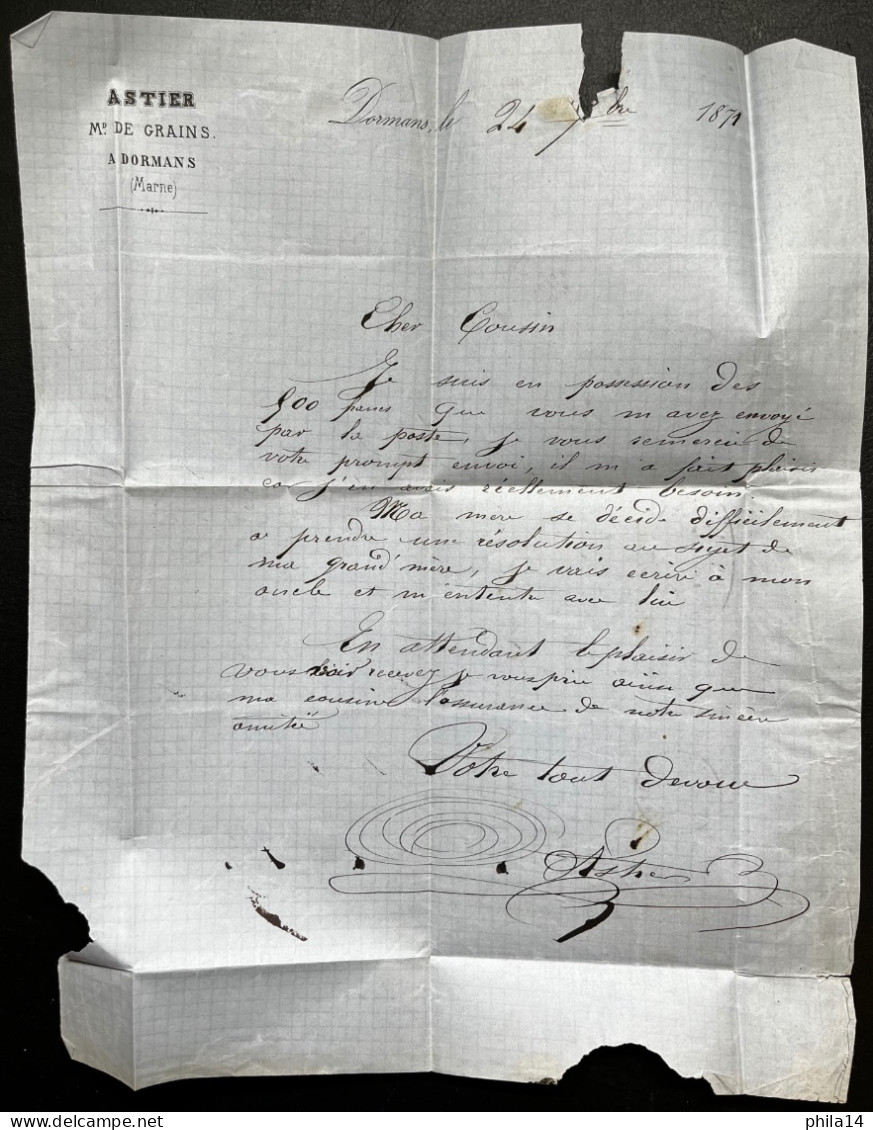 ASTIER
Md. DE GRAINS.
A DORMANS
(Marne)
Dormans, le 24 7bre 1871
Cher Cousin
Je suis en possession des
500 francs que vous m avez envoyé
par la poste, je vous remercie de
votre prompt envoi, il m a fait plaisir
car j'en avais réellement besoin.
Ma mere se décide difficilement
a prendre une résolution au sujet de
ma grand'mère, je vais ecrire à mon
oncle et m'entendre avec lui
En attendant le plaisir de
vous voir recevez je vous prie ainsi que
ma cousine l'assurance de notre sincère
amitié
Votre tout devoué
Astier
delcampe.net
phila14